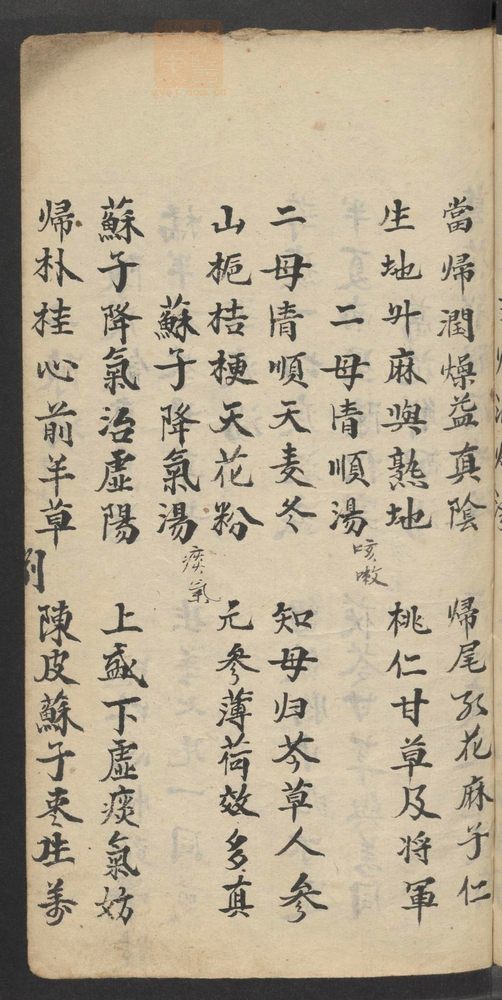 當歸潤燥益真陰　歸尾红花麻子仁
生地升麻與熟地　桃仁甘草及将軍
二母清順湯 咳嗽
二母清順天麦冬　知母归芩草人參
山栀桔梗天花粉　元參薄荷效多真
蘇子降氣湯 痰氣
蘇子降氣治虛陽　上盛下虛痰氣妨
歸朴桂心前羊草　陳皮蘇子枣生姜